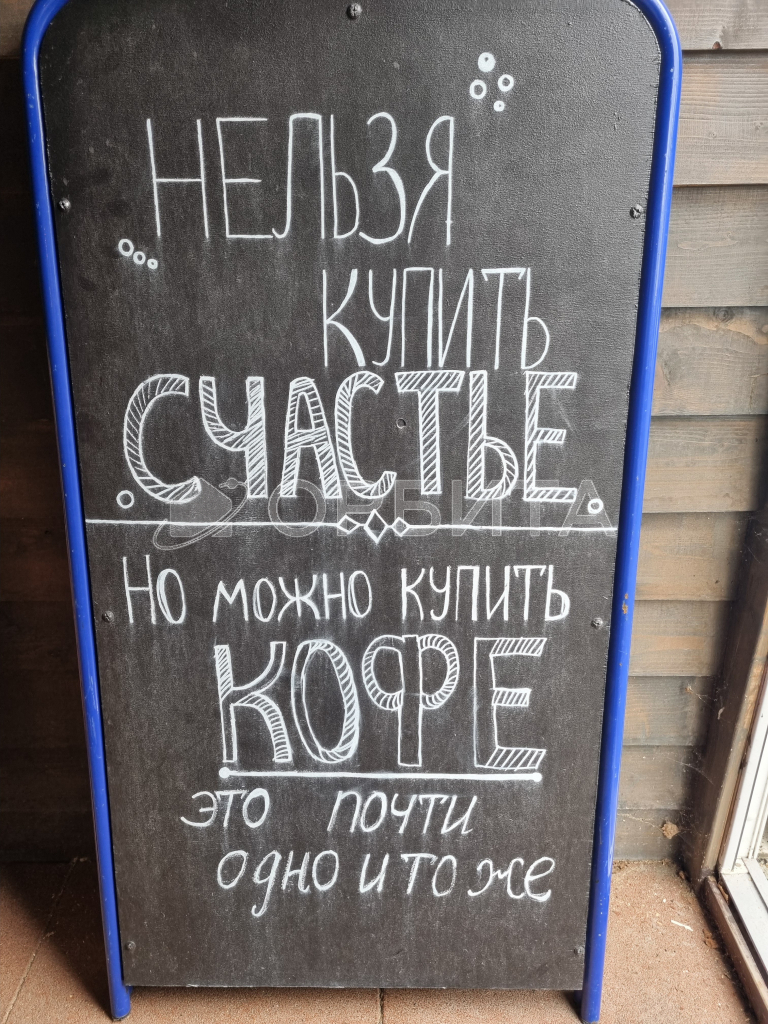 НЕЛЬЗЯ
КУПИТЬ
СЧАСТЬЕ
ОРБИТА
Но можно купить
КОФЕ
это почти
одно и то же